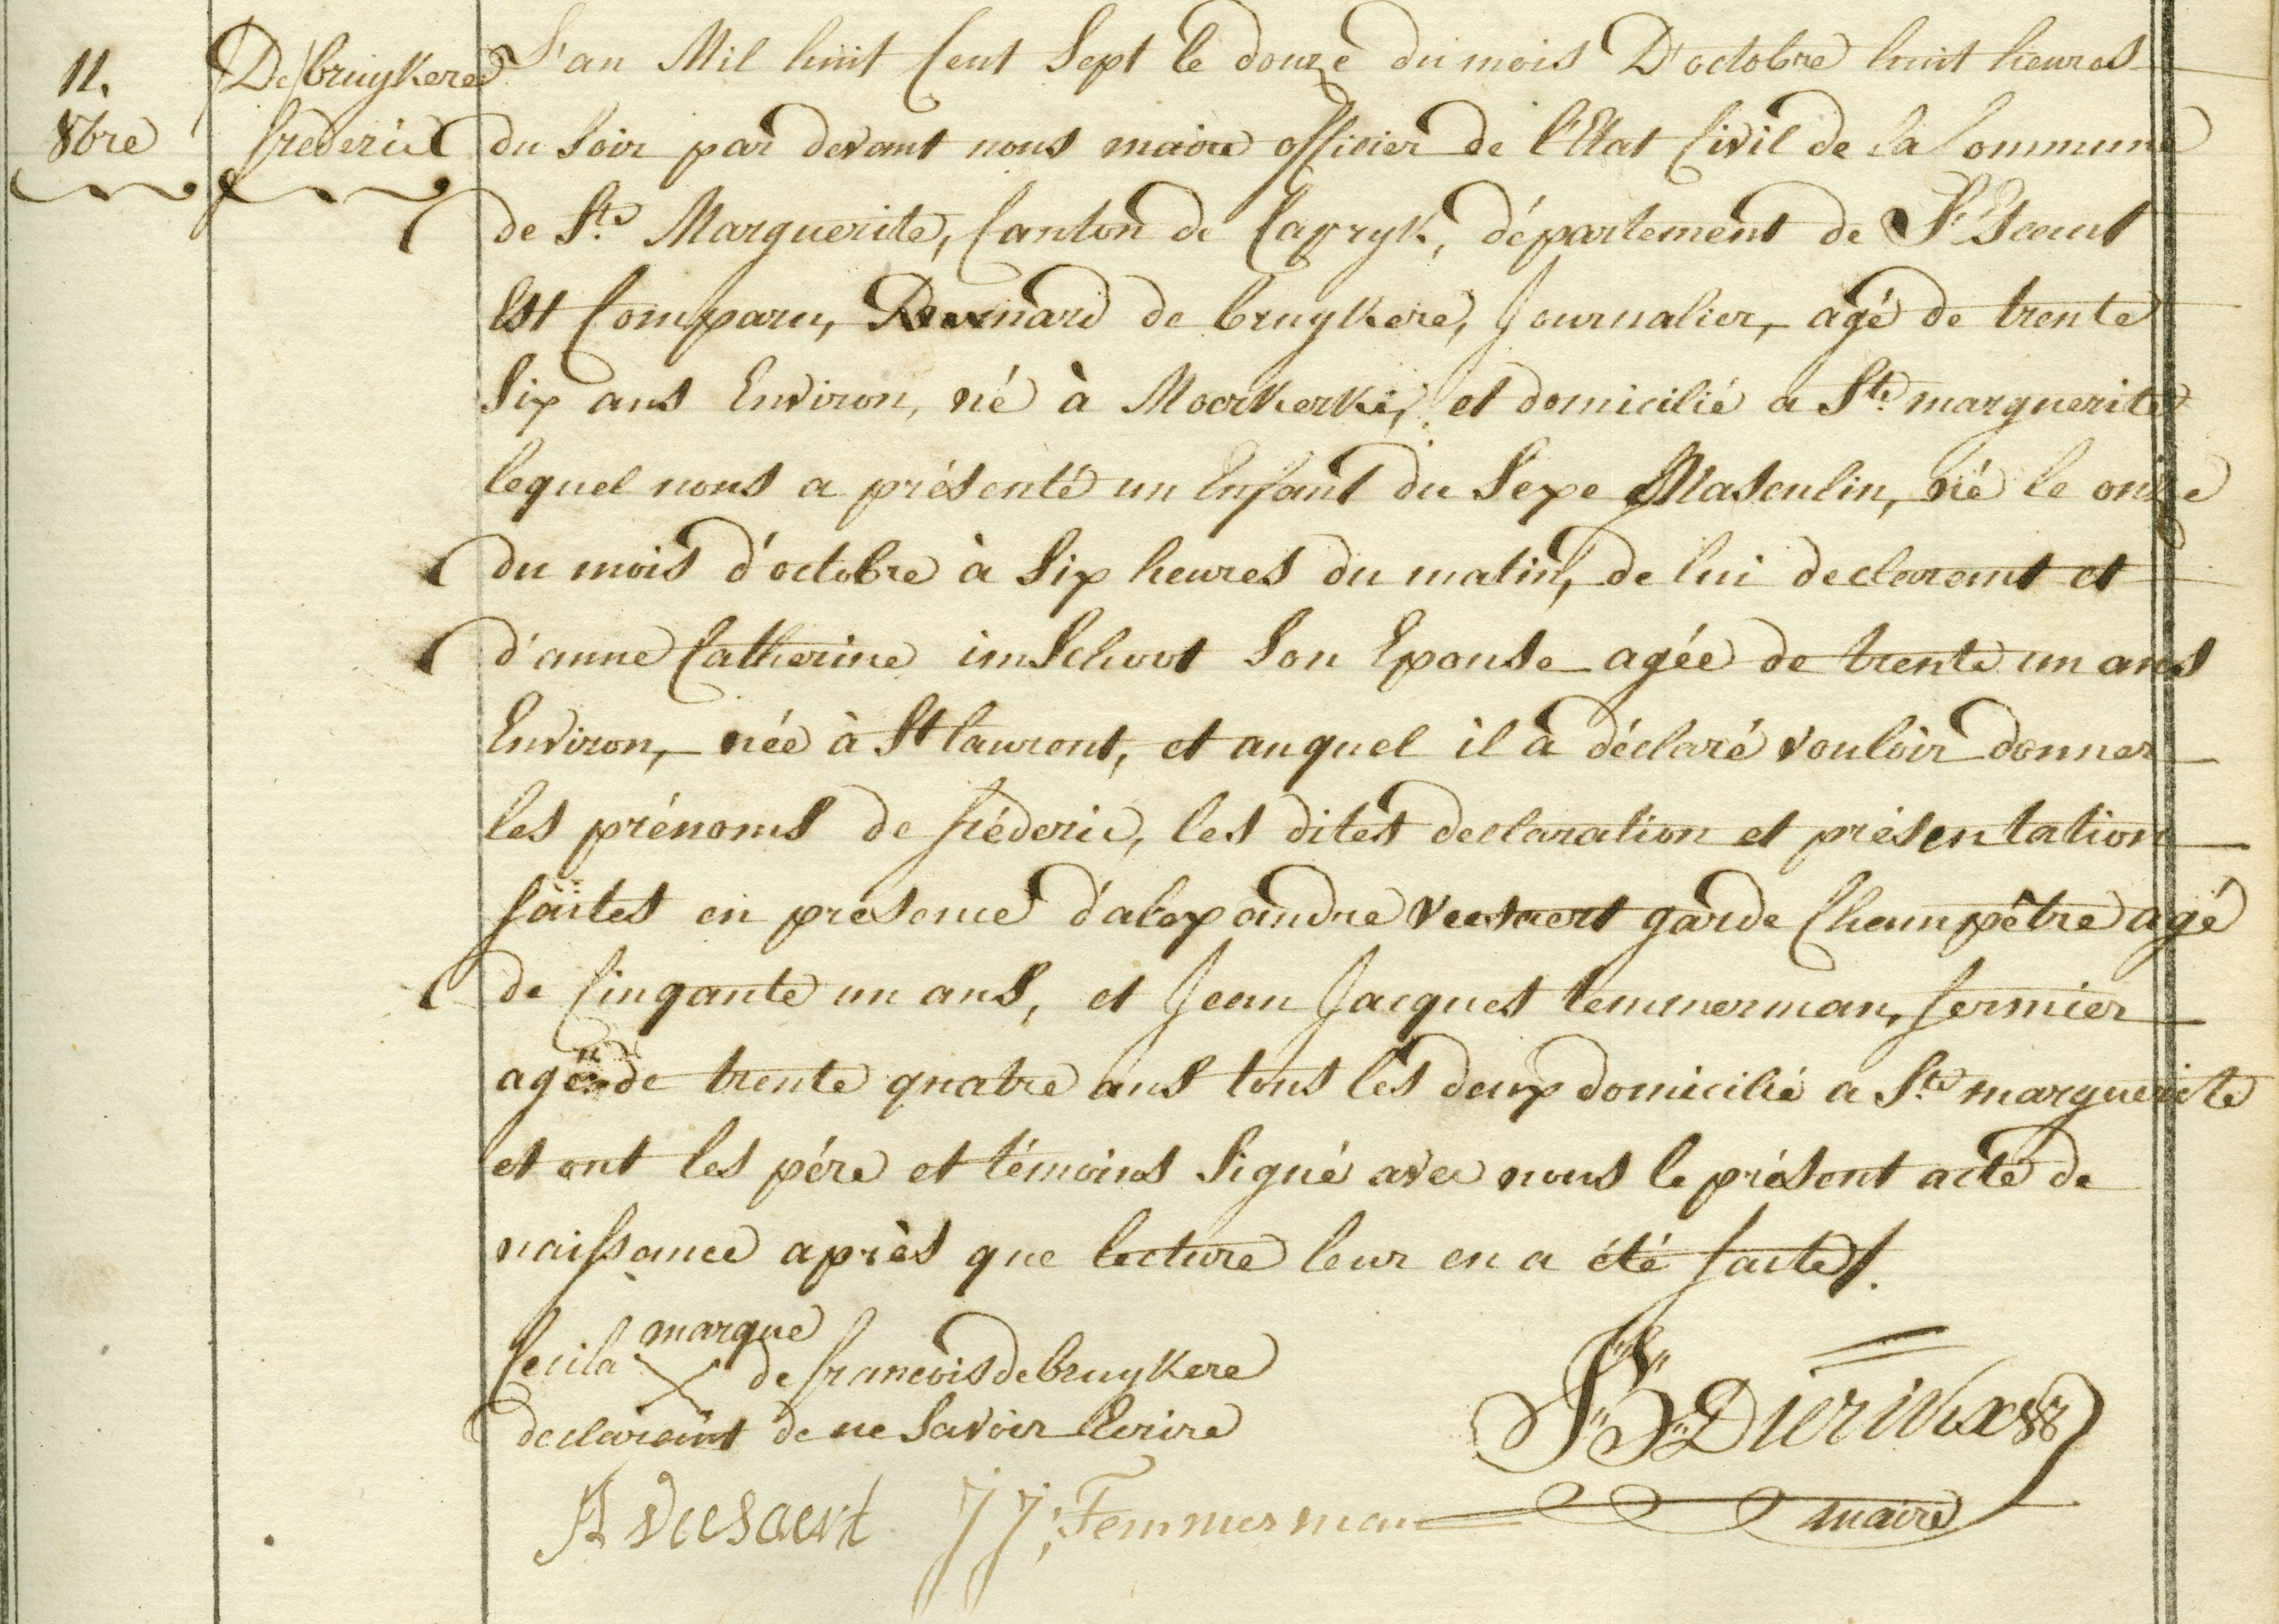 11.
8bre
De bruykere
frederic
L'an Mil huit Cent Sept le douze du mois D'octobre huit heures
du Soir par devant nous maire officier de l'Etat Civil de la Commune
de Ste. Marguerite, Canton de Capryk, département de l'Escaut
Est Comparu, Bernard de bruykere, Journalier, agé de trente
Six ans Environ, né à Moerkerke, et domicilié a Ste. marguerite
lequel nous a présenté un Enfant du Sexe Masculin, né le onze
du mois d'octobre à Six heures du matin, de lui declarant et
d'anne Catherine imSchoot Son Epouse agée de trente un ans
Environ, née à St laurent, et auquel il à déclaré vouloir donner
les prénoms de fréderic, les dites declaration et présentation
faites en presence d'alexandre veesaert garde Champêtre agé
de Cinqante un ans, et Jean Jacques temmerman, fermier
agé de trente quatre ans tous les deux domicilié a Ste. marguerite
et ont les pére et témoins Signé avec nous le présent acte de
naissance après que lecture leur en a été faite.
Ceci la marque
X de francois de bruykere
declarant de ne Savoir Ecrire
A veesaert J J: Temmerman
maire